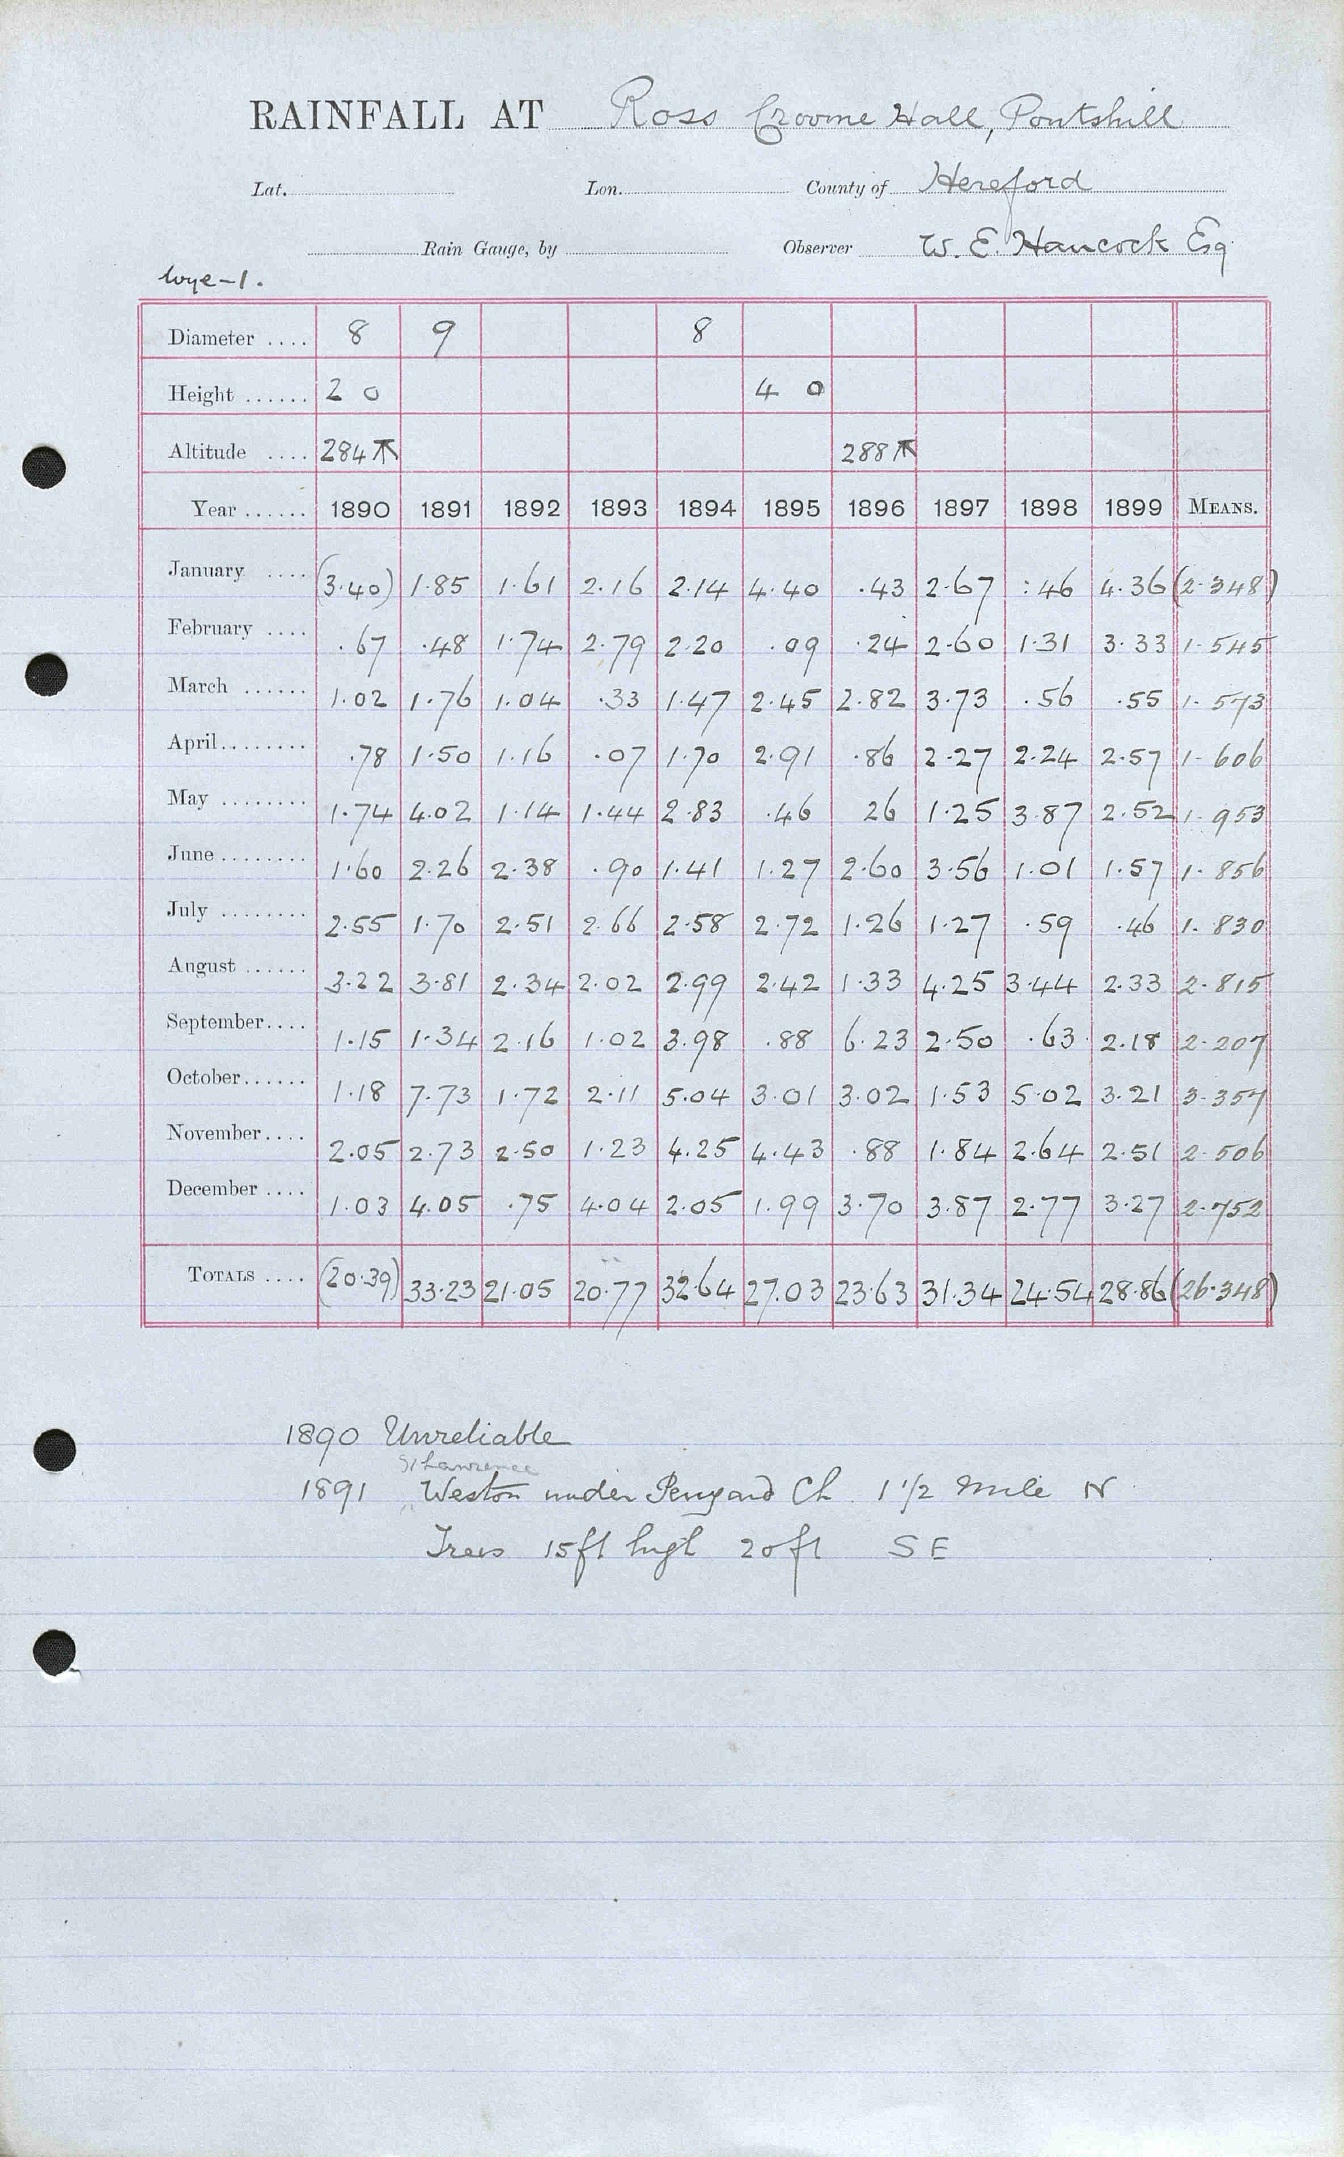 RAINFALL AT Ross Croome Hall, Pontshill
Lat. Lon. County of Hereford
Rain Gauge, by Observer W. E. Hancock Esq
Wye-1.
Diameter .... 8 9 8
Height ...... 2 0 4 0
Altitude .... 284 288
Year ...... 1890 1891 1892 1893 1894 1895 1896 1897 1898 1899 MEANS.
January .... (3.40) 1.85 1.61 2.16 2.14 4.40 .43 2.67 .46 4.36 (2.348)
February .... .67 .48 1.74 2.79 2.20 .09 .24 2.60 1.31 3.33 1.545
March ...... 1.02 1.76 1.04 .33 1.47 2.45 2.82 3.73 .56 .55 1.573
April........ .78 1.50 1.16 .07 1.70 2.91 .86 2.27 2.24 2.57 1.606
May ........ 1.74 4.02 1.14 1.44 2.83 .46 26 1.25 3.87 2.52 1.953
June ........ 1.60 2.26 2.38 .90 1.41 1.27 2.60 3.56 1.01 1.57 1.856
July ........ 2.55 1.70 2.51 2.66 2.58 2.72 1.26 1.27 .59 .46 1.830
August ...... 3.22 3.81 2.34 2.02 2.99 2.42 1.33 4.25 3.44 2.33 2.815
September.... 1.15 1.34 2.16 1.02 3.98 .88 6.23 2.50 .63 2.18 2.207
October...... 1.18 7.73 1.72 2.11 5.04 3.01 3.02 1.53 5.02 3.21 3.357
November.... 2.05 2.73 2.50 1.23 4.25 4.43 .88 1.84 2.64 2.51 2.506
December .... 1.03 4.05 .75 4.04 2.05 1.99 3.70 3.87 2.77 3.27 2.752
TOTALS .... (20.39) 33.23 21.05 20.77 32.64 27.03 23.63 31.34 24.54 28.86 (26.348)
1890 Unreliable
St Lawrence
1891 Weston under Penyard Ch 1 1/2 Mile N
Trees 15ft high 20ft SE